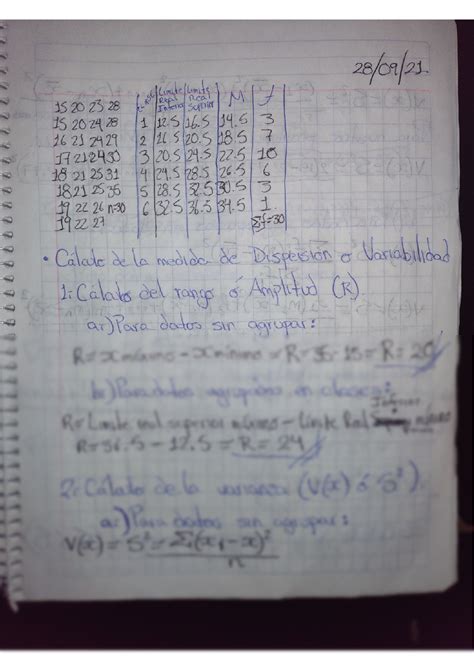 28/09/21.
Limite Real Inferior Limite Real Superior M f
15 20 23 28
15 20 24 28 1 12.5 16.5 14.5 3
16 21 24 29 2 16.5 20.5 18.5 7
17 21 24 30 3 20.5 24.5 22.5 10
18 21 25 31 4 24.5 28.5 26.5 6
18 21 25 35 5 28.5 32.5 30.5 3
19 22 26 n=30 6 32.5 36.5 34.5 1
19 22 27 Σf=30
• Cálculo de la medida de Dispersión o Variabilidad
1: Cálculo del rango ó Amplitud (R)
a:) Para datos sin agrupar:
R = x máximo - x mínimo = R = 35 - 15 = R = 20
b:) Para datos agrupados en clases:
Inferior
R = Limite real superior máximo - Limite Real mínimo
R = 36.5 - 12.5 = R = 24
2: Cálculo de la varianza (V(x) ó S²).
a:) Para datos sin agrupar:
V(x) = S² = Σ(x₁ - x)²
n